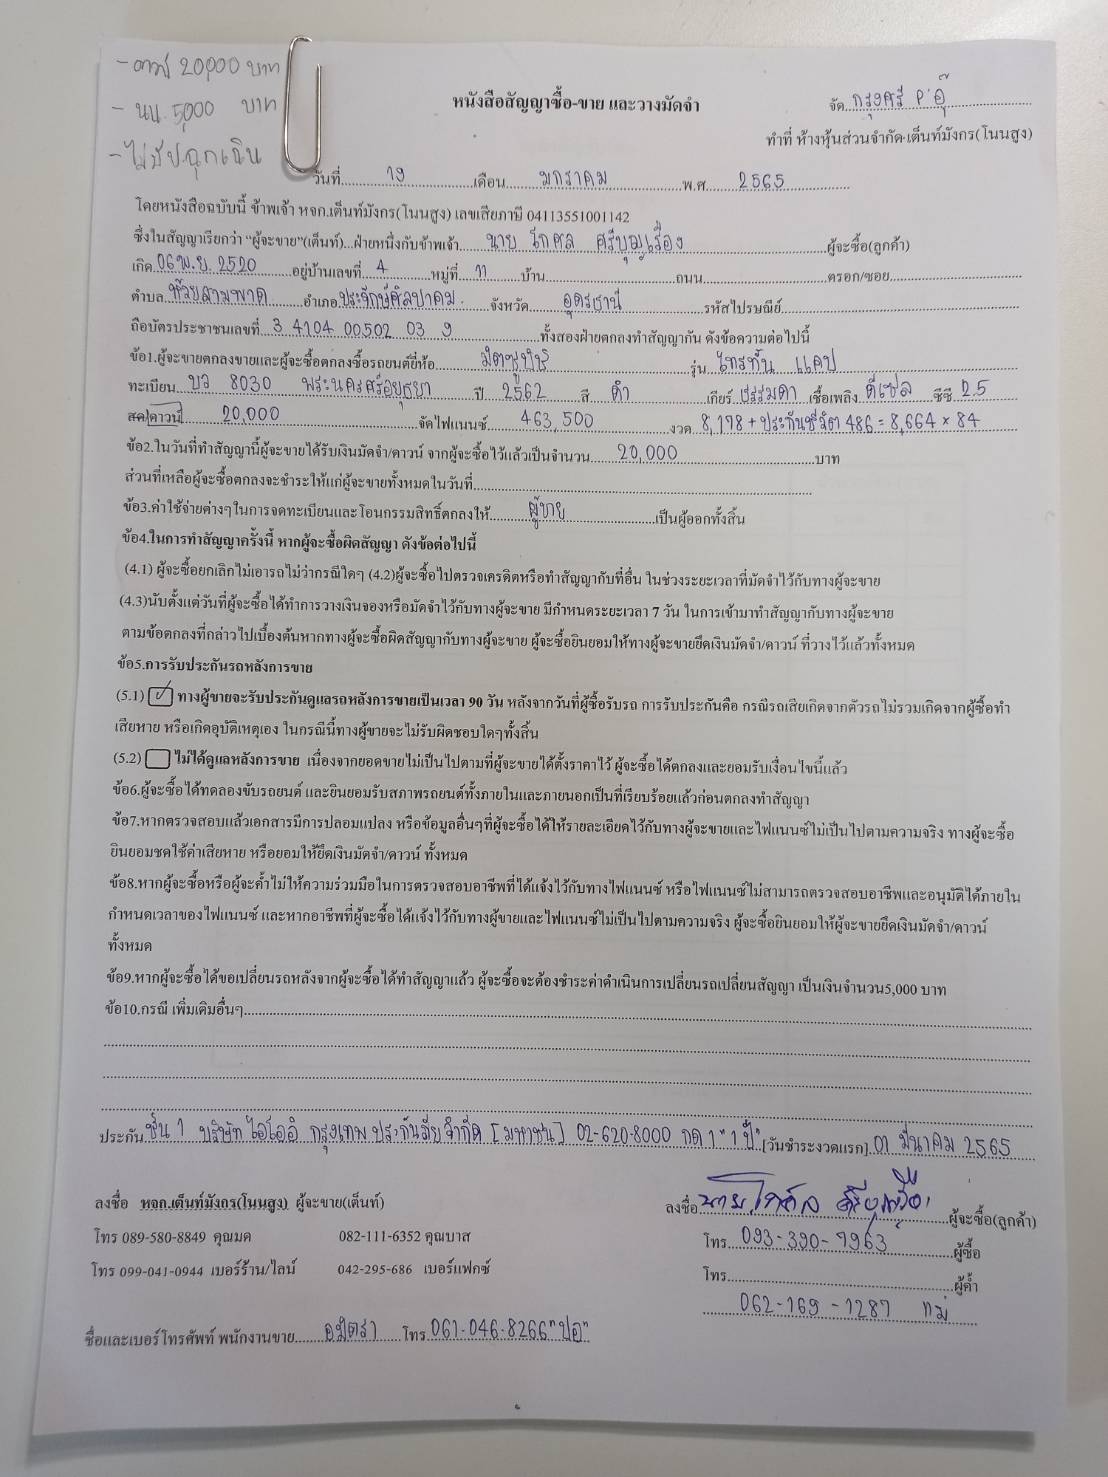 - ดาวน์ 20,000 บาท
- นน. 5,000 บาท
- ไม่มีปลุกเฉิน
หนังสือสัญญาซื้อ-ขาย และวางมัดจำ
จัด กรุงศรี P'อุ๊
ทำที่ ห้างหุ้นส่วนจำกัด.เต็นท์มังกร(โนนสูง)
วันที่ 19 เดือน มกราคม พ.ศ 2565
โดยหนังสือฉบับนี้ ข้าพเจ้า หจก.เต็นท์มังกร(โนนสูง) เลขเสียภาษี 04113551001142
ซึ่งในสัญญาเรียกว่า "ผู้จะขาย"(เต็นท์)...ฝ่ายหนึ่งกับข้าพเจ้า นาย โกศล ศรีบุญเรือง ผู้จะซื้อ(ลูกค้า)
เกิด 06 พ.ย. 2520 อยู่บ้านเลขที่ 4 หมู่ที่ 11 บ้าน ถนน ตรอก/ซอย
ตำบล ห้วยสามพาด อำเภอ ประจักษ์ศิลปาคม จังหวัด อุดรธานี รหัสไปรษณีย์
ถือบัตรประชาชนเลขที่ 3 4104 00502 03 9 ทั้งสองฝ่ายตกลงทำสัญญากัน ดังข้อความต่อไปนี้
ข้อ1.ผู้จะขายตกลงขายและผู้จะซื้อตกลงซื้อรถยนต์ยี่ห้อ มิตซูบิชิ รุ่น ไทรทัน แคป
ทะเบียน บว 8030 พระนครศรีอยุธยา ปี 2562 สี ดำ เกียร์ ธรรมดา เชื้อเพลิง ดีเซล ซีซี 2.5
สด/ดาวน์ 20,000 จัดไฟแนนซ์ 463,500 งวด 8,198 + ประกันชีวิต 486 = 8,664 x 84
ข้อ2.ในวันที่ทำสัญญานี้ผู้จะขายได้รับเงินมัดจำ/ดาวน์ จากผู้จะซื้อไว้แล้วเป็นจำนวน 20,000 บาท
ส่วนที่เหลือผู้จะซื้อตกลงจะชำระให้แก่ผู้จะขายทั้งหมดในวันที่
ข้อ3.ค่าใช้จ่ายต่างๆในการจดทะเบียนและโอนกรรมสิทธิ์ตกลงให้ ผู้ขาย เป็นผู้ออกทั้งสิ้น
ข้อ4.ในการทำสัญญาครั้งนี้ หากผู้จะซื้อผิดสัญญา ดังข้อต่อไปนี้
(4.1) ผู้จะซื้อยกเลิกไม่เอารถไม่ว่ากรณีใดๆ (4.2)ผู้จะซื้อไปตรวจเครดิตหรือทำสัญญากับที่อื่น ในช่วงระยะเวลาที่มัดจำไว้กับทางผู้จะขาย
(4.3)นับตั้งแต่วันที่ผู้จะซื้อได้ทำการวางเงินจองหรือมัดจำไว้กับทางผู้จะขาย มีกำหนดระยะเวลา 7 วัน ในการเข้ามาทำสัญญากับทางผู้จะขาย
ตามข้อตกลงที่กล่าวไปเบื้องต้นหากทางผู้จะซื้อผิดสัญญากับทางผู้จะขาย ผู้จะซื้อยินยอมให้ทางผู้จะขายยึดเงินมัดจำ/ดาวน์ ที่วางไว้แล้วทั้งหมด
ข้อ5.การรับประกันรถหลังการขาย
(5.1) ✓ ทางผู้ขายจะรับประกันดูแลรถหลังการขายเป็นเวลา 90 วัน หลังจากวันที่ผู้ซื้อรับรถ การรับประกันคือ กรณีรถเสียเกิดจากตัวรถไม่รวมเกิดจากผู้ซื้อทำ
เสียหาย หรือเกิดอุบัติเหตุเอง ในกรณีนี้ทางผู้ขายจะไม่รับผิดชอบใดๆทั้งสิ้น
(5.2) ไม่ได้ดูแลหลังการขาย เนื่องจากยอดขายไม่เป็นไปตามที่ผู้จะขายได้ตั้งราคาไว้ ผู้จะซื้อได้ตกลงและยอมรับเงื่อนไขนี้แล้ว
ข้อ6.ผู้จะซื้อได้ทดลองขับรถยนต์ และยินยอมรับสภาพรถยนต์ทั้งภายในและภายนอกเป็นที่เรียบร้อยแล้วก่อนตกลงทำสัญญา
ข้อ7.หากตรวจสอบแล้วเอกสารมีการปลอมแปลง หรือข้อมูลอื่นๆที่ผู้จะซื้อได้ให้รายละเอียดไว้กับทางผู้จะขายและไฟแนนซ์ไม่เป็นไปตามความจริง ทางผู้จะซื้อ
ยินยอมชดใช้ค่าเสียหาย หรือยอมให้ยึดเงินมัดจำ/ดาวน์ ทั้งหมด
ข้อ8.หากผู้จะซื้อหรือผู้จะค้ำไม่ให้ความร่วมมือในการตรวจสอบอาชีพที่ได้แจ้งไว้กับทางไฟแนนซ์ หรือไฟแนนซ์ไม่สามารถตรวจสอบอาชีพและอนุมัติได้ภายใน
กำหนดเวลาของไฟแนนซ์ และหากอาชีพที่ผู้จะซื้อได้แจ้งไว้กับทางผู้ขายและไฟแนนซ์ไม่เป็นไปตามความจริง ผู้จะซื้อยินยอมให้ผู้จะขายยึดเงินมัดจำ/ดาวน์
ทั้งหมด
ข้อ9.หากผู้จะซื้อได้ขอเปลี่ยนรถหลังจากผู้จะซื้อได้ทำสัญญาแล้ว ผู้จะซื้อจะต้องชำระค่าดำเนินการเปลี่ยนรถเปลี่ยนสัญญา เป็นเงินจำนวน5,000 บาท
ข้อ10.กรณี เพิ่มเติมอื่นๆ
ประกัน ชั้น 1 บริษัท ไอโออิ กรุงเทพ ประกันภัย จำกัด [มหาชน] 02-620-8000 กด 1 "1 ปี" [วันชำระงวดแรก] 01 มีนาคม 2565
ลงชื่อ หจก.เต็นท์มังกร(โนนสูง) ผู้จะขาย(เต็นท์)
ลงชื่อ นายโกศล ศรีบุญเรือง ผู้จะซื้อ(ลูกค้า)
โทร 089-580-8849 คุณมด 082-111-6352 คุณบาส
โทร 093-390-9963 ผู้ซื้อ
โทร 099-041-0944 เบอร์ร้าน/ไลน์ 042-295-686 เบอร์แฟกซ์
โทร ผู้ค้ำ
062-169-1287 แม่
ชื่อและเบอร์โทรศัพท์ พนักงานขาย อมิตรา โทร 061-046-8266 "ปอ"